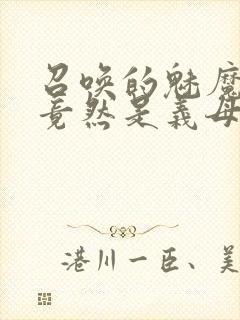 召唤的魅魔
竟然是义母
港川一臣、美